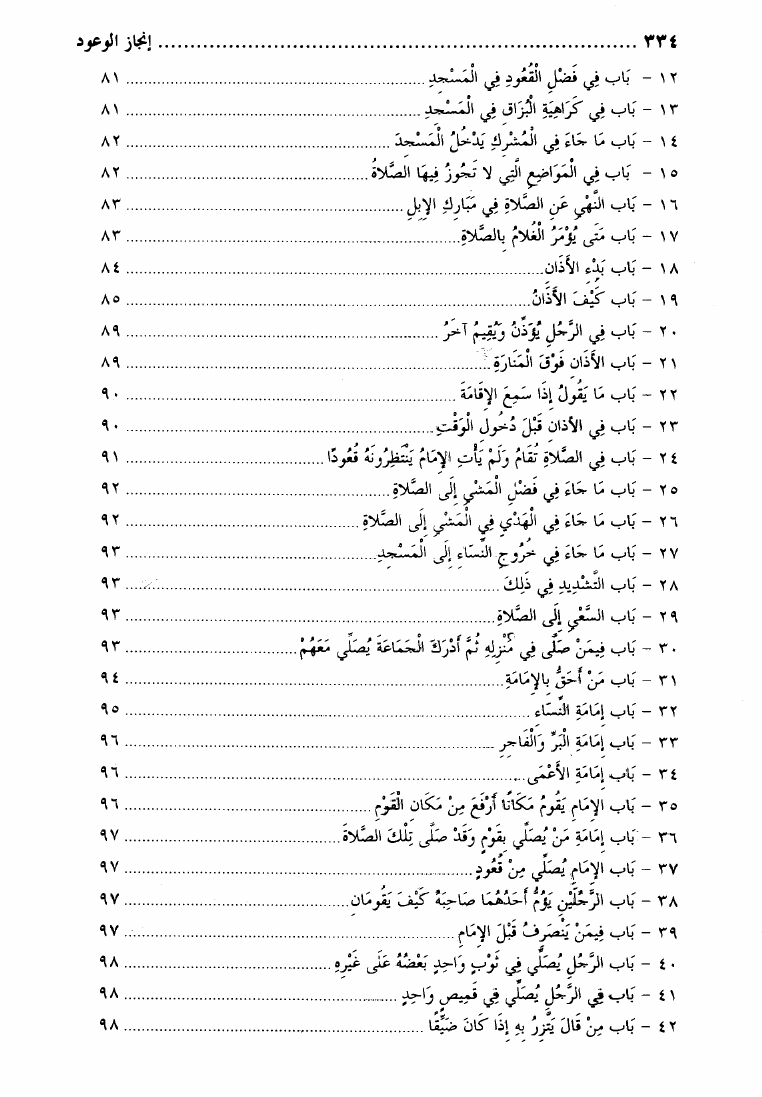 ٣٣٤ ........ إنجاز الوعود
١٢ - بَاب فِي فَضْلِ الْقُعُودِ فِي الْمَسْجِدِ ........ ٨١
١٣ - بَاب فِي كَرَاهِيَةِ الْبُزَاقِ فِي الْمَسْجِدِ ........ ٨١
١٤ - بَاب مَا جَاءَ فِي الْمُشْرِكِ يَدْخُلُ الْمَسْجِدَ ........ ٨٢
١٥ - بَاب فِي الْمَوَاضِعِ الَّتِي لا تَجُوزُ فِيهَا الصَّلاةُ ........ ٨٢
١٦ - بَاب النَّهْيِ عَنِ الصَّلاةِ فِي مَبَارِكِ الإِبِلِ ........ ٨٣
١٧ - بَاب مَتَى يُؤْمَرُ الْغُلامُ بِالصَّلاةِ ........ ٨٣
١٨ - بَاب بَدْءِ الأَذَانِ ........ ٨٤
١٩ - بَاب كَيْفَ الأَذَانُ ........ ٨٥
٢٠ - بَاب فِي الرَّجُلِ يُؤَذِّنُ وَيُقِيمُ آخَرُ ........ ٨٩
٢١ - بَاب الأَذَانِ فَوْقَ الْمَنَارَةِ ........ ٨٩
٢٢ - بَاب مَا يَقُولُ إِذَا سَمِعَ الإِقَامَةَ ........ ٩٠
٢٣ - بَاب فِي الأذان قَبْلَ دُخُولِ الْوَقْتِ ........ ٩٠
٢٤ - بَاب فِي الصَّلاةِ تُقَامُ وَلَمْ يَأْتِ الإِمَامُ يَنْتَظِرُونَهُ قُعُودًا ........ ٩١
٢٥ - بَاب مَا جَاءَ فِي فَضْلِ الْمَشْيِ إِلَى الصَّلاةِ ........ ٩٢
٢٦ - بَاب مَا جَاءَ فِي الْهَدْيِ فِي الْمَشْيِ إِلَى الصَّلاةِ ........ ٩٢
٢٧ - بَاب مَا جَاءَ فِي خُرُوجِ النِّسَاءِ إِلَى الْمَسْجِدِ ........ ٩٣
٢٨ - بَاب التَّشْدِيدِ فِي ذَلِكَ ........ ٩٣
٢٩ - بَاب السَّعْيِ إِلَى الصَّلاةِ ........ ٩٣
٣٠ - بَاب فِيمَنْ صَلَّى فِي مَنْزِلِهِ ثُمَّ أَدْرَكَ الْجَمَاعَةَ يُصَلِّي مَعَهُمْ ........ ٩٣
٣١ - بَاب مَنْ أَحَقُّ بِالإِمَامَةِ ........ ٩٤
٣٢ - بَاب إِمَامَةِ النِّسَاءِ ........ ٩٥
٣٣ - بَاب إِمَامَةِ الْبَرِّ وَالْفَاجِرِ ........ ٩٦
٣٤ - بَاب إِمَامَةِ الأَعْمَى ........ ٩٦
٣٥ - بَاب الإِمَامِ يَقُومُ مَكَانًا أَرْفَعَ مِنْ مَكَانِ الْقَوْمِ ........ ٩٦
٣٦ - بَاب إِمَامَةِ مَنْ يُصَلِّي بِقَوْمٍ وَقَدْ صَلَّى تِلْكَ الصَّلاةَ ........ ٩٧
٣٧ - بَاب الإِمَامِ يُصَلِّي مِنْ قُعُودٍ ........ ٩٧
٣٨ - بَاب الرَّجُلَيْنِ يَؤُمُّ أَحَدُهُمَا صَاحِبَهُ كَيْفَ يَقُومَانِ ........ ٩٧
٣٩ - بَاب فِيمَنْ يَنْصَرِفُ قَبْلَ الإِمَامِ ........ ٩٧
٤٠ - بَاب الرَّجُلِ يُصَلِّي فِي ثَوْبٍ وَاحِدٍ بَعْضُهُ عَلَى غَيْرِهِ ........ ٩٨
٤١ - بَاب فِي الرَّجُلِ يُصَلِّي فِي قَمِيصٍ وَاحِدٍ ........ ٩٨
٤٢ - بَاب مِنْ قَالَ يَتَّزِرُ بِهِ إِذَا كَانَ ضَيِّقًا ........ ٩٨